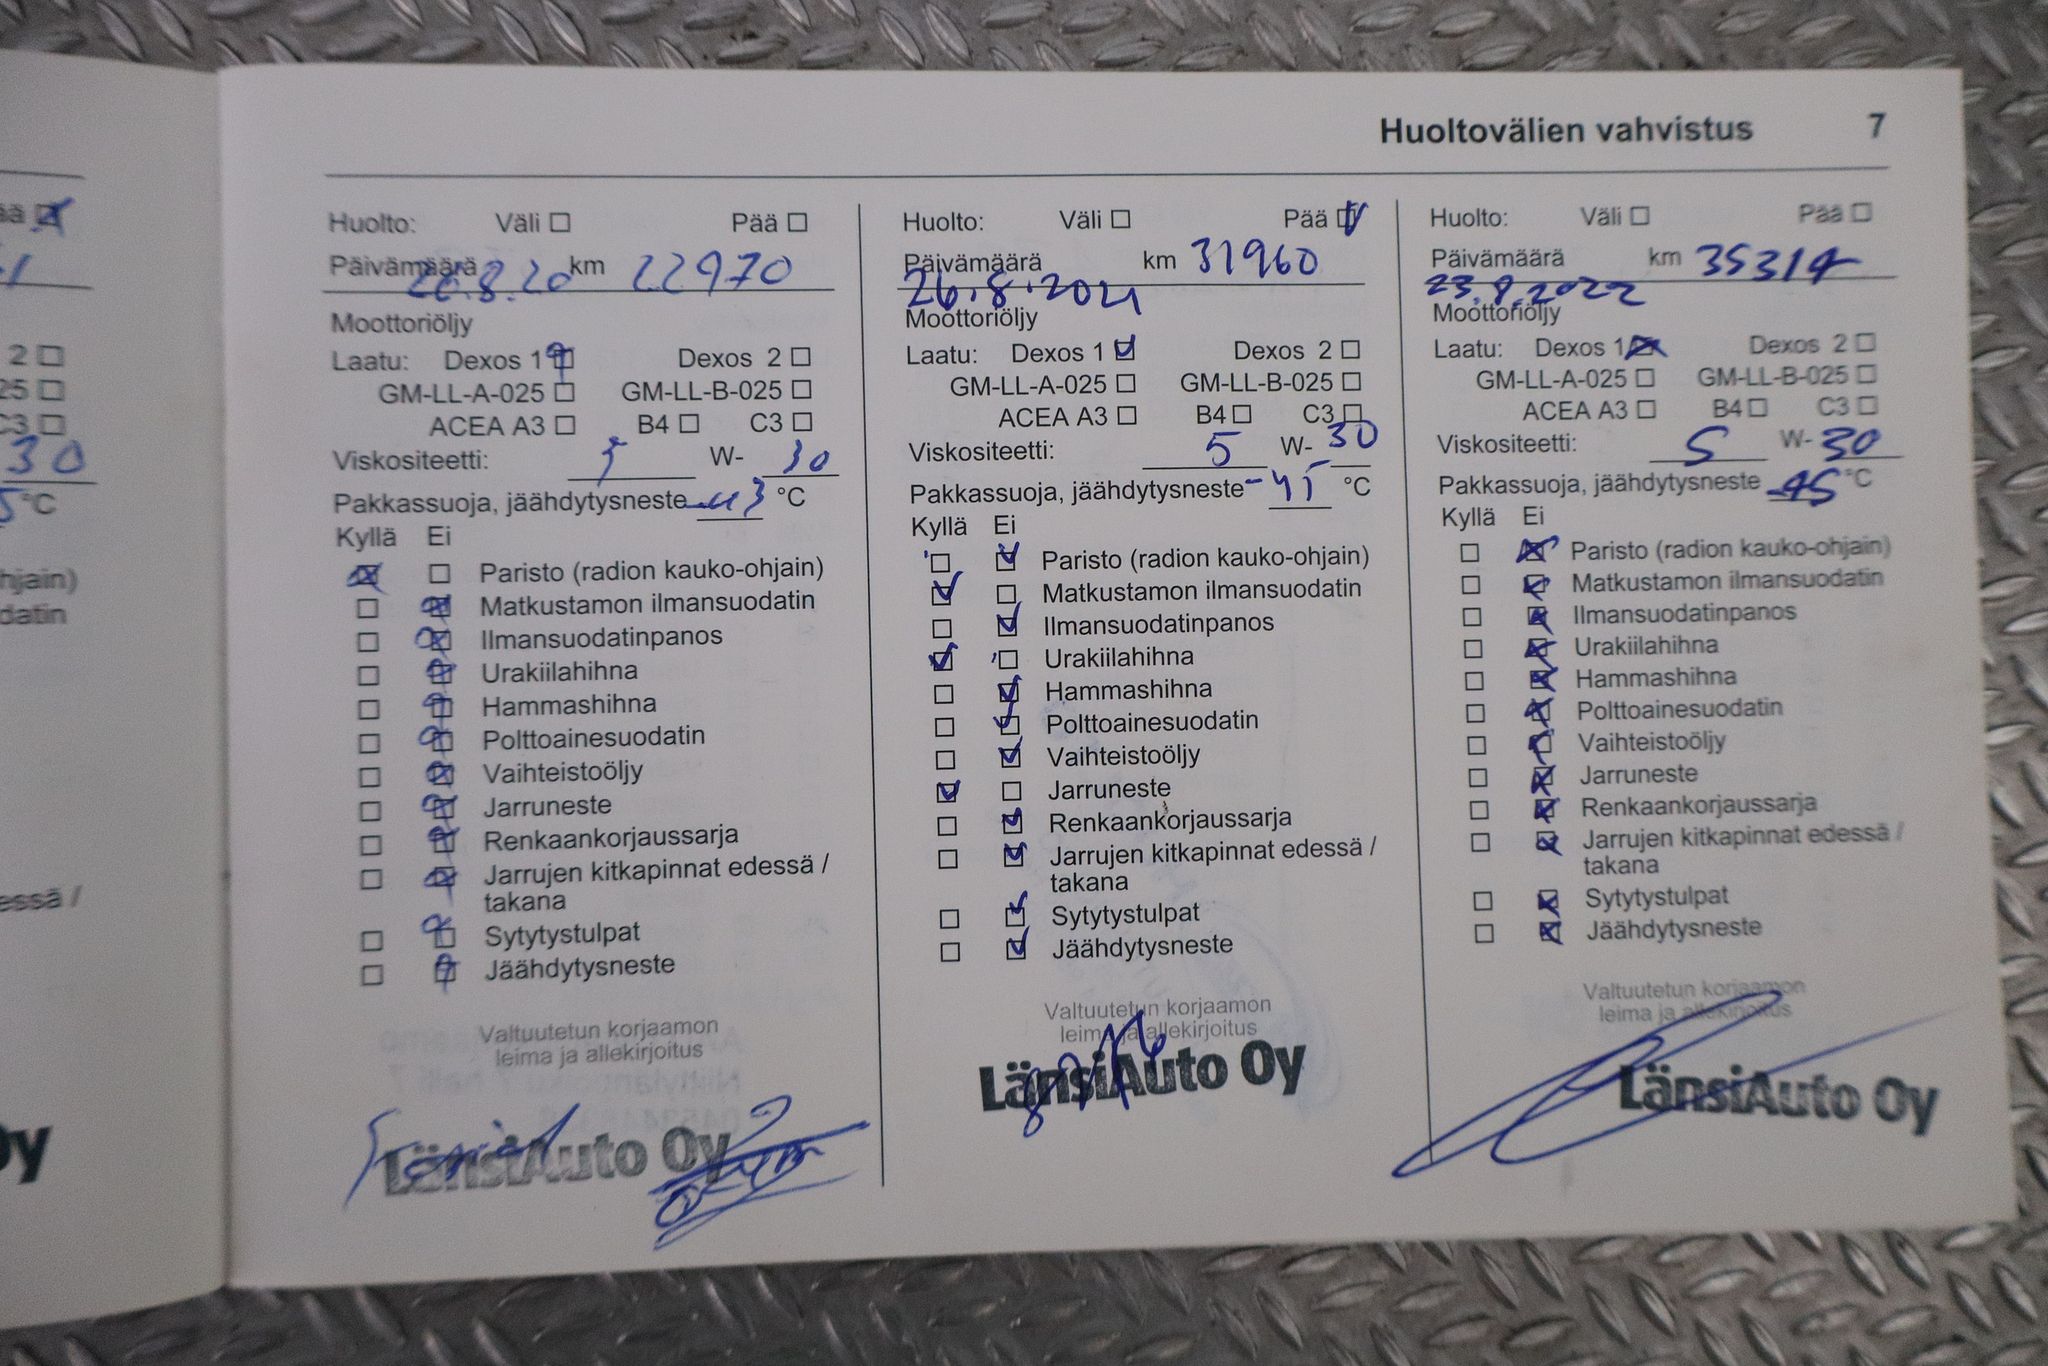 Huoltovälien vahvistus 7
Huolto: Väli ☐ Pää ☐
Päivämäärä 26.8.20 km 22970
Moottoriöljy
Laatu: Dexos 1 ☑ Dexos 2 ☐
GM-LL-A-025 ☐ GM-LL-B-025 ☐
ACEA A3 ☐ B4 ☐ C3 ☐
Viskositeetti: 5 W- 30
Pakkassuoja, jäähdytysneste -43 °C
Kyllä Ei
☒ ☐ Paristo (radion kauko-ohjain)
☐ ☒ Matkustamon ilmansuodatin
☐ ☒ Ilmansuodatinpanos
☐ ☒ Urakiilahihna
☐ ☒ Hammashihna
☐ ☒ Polttoainesuodatin
☐ ☒ Vaihteistoöljy
☐ ☒ Jarruneste
☐ ☒ Renkaankorjaussarja
☐ ☒ Jarrujen kitkapinnat edessä /
takana
☐ ☒ Sytytystulpat
☐ ☒ Jäähdytysneste
Valtuutetun korjaamon
leima ja allekirjoitus
LänsiAuto Oy
Huolto: Väli ☐ Pää ☑
Päivämäärä km 31960
26.8.2021
Moottoriöljy
Laatu: Dexos 1 ☑ Dexos 2 ☐
GM-LL-A-025 ☐ GM-LL-B-025 ☐
ACEA A3 ☐ B4 ☐ C3 ☐
Viskositeetti: 5 W- 30
Pakkassuoja, jäähdytysneste -45 °C
Kyllä Ei
☐ ☑ Paristo (radion kauko-ohjain)
☑ ☐ Matkustamon ilmansuodatin
☐ ☑ Ilmansuodatinpanos
☑ ☐ Urakiilahihna
☐ ☑ Hammashihna
☐ ☑ Polttoainesuodatin
☐ ☑ Vaihteistoöljy
☑ ☐ Jarruneste
☐ ☑ Renkaankorjaussarja
☐ ☑ Jarrujen kitkapinnat edessä /
takana
☐ ☑ Sytytystulpat
☐ ☑ Jäähdytysneste
Valtuutetun korjaamon
leima ja allekirjoitus
LänsiAuto Oy
Huolto: Väli ☐ Pää ☐
Päivämäärä km 35314
23.8.2022
Moottoriöljy
Laatu: Dexos 1 ☒ Dexos 2 ☐
GM-LL-A-025 ☐ GM-LL-B-025 ☐
ACEA A3 ☐ B4 ☐ C3 ☐
Viskositeetti: 5 W- 30
Pakkassuoja, jäähdytysneste -45 °C
Kyllä Ei
☐ ☒ Paristo (radion kauko-ohjain)
☐ ☒ Matkustamon ilmansuodatin
☐ ☒ Ilmansuodatinpanos
☐ ☒ Urakiilahihna
☐ ☒ Hammashihna
☐ ☒ Polttoainesuodatin
☐ ☒ Vaihteistoöljy
☐ ☒ Jarruneste
☐ ☒ Renkaankorjaussarja
☐ ☒ Jarrujen kitkapinnat edessä /
takana
☐ ☒ Sytytystulpat
☐ ☒ Jäähdytysneste
Valtuutetun korjaamon
leima ja allekirjoitus
LänsiAuto Oy